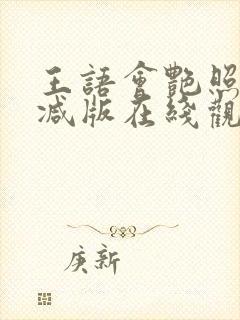 王語會艷照
减版在綫觀
庚新